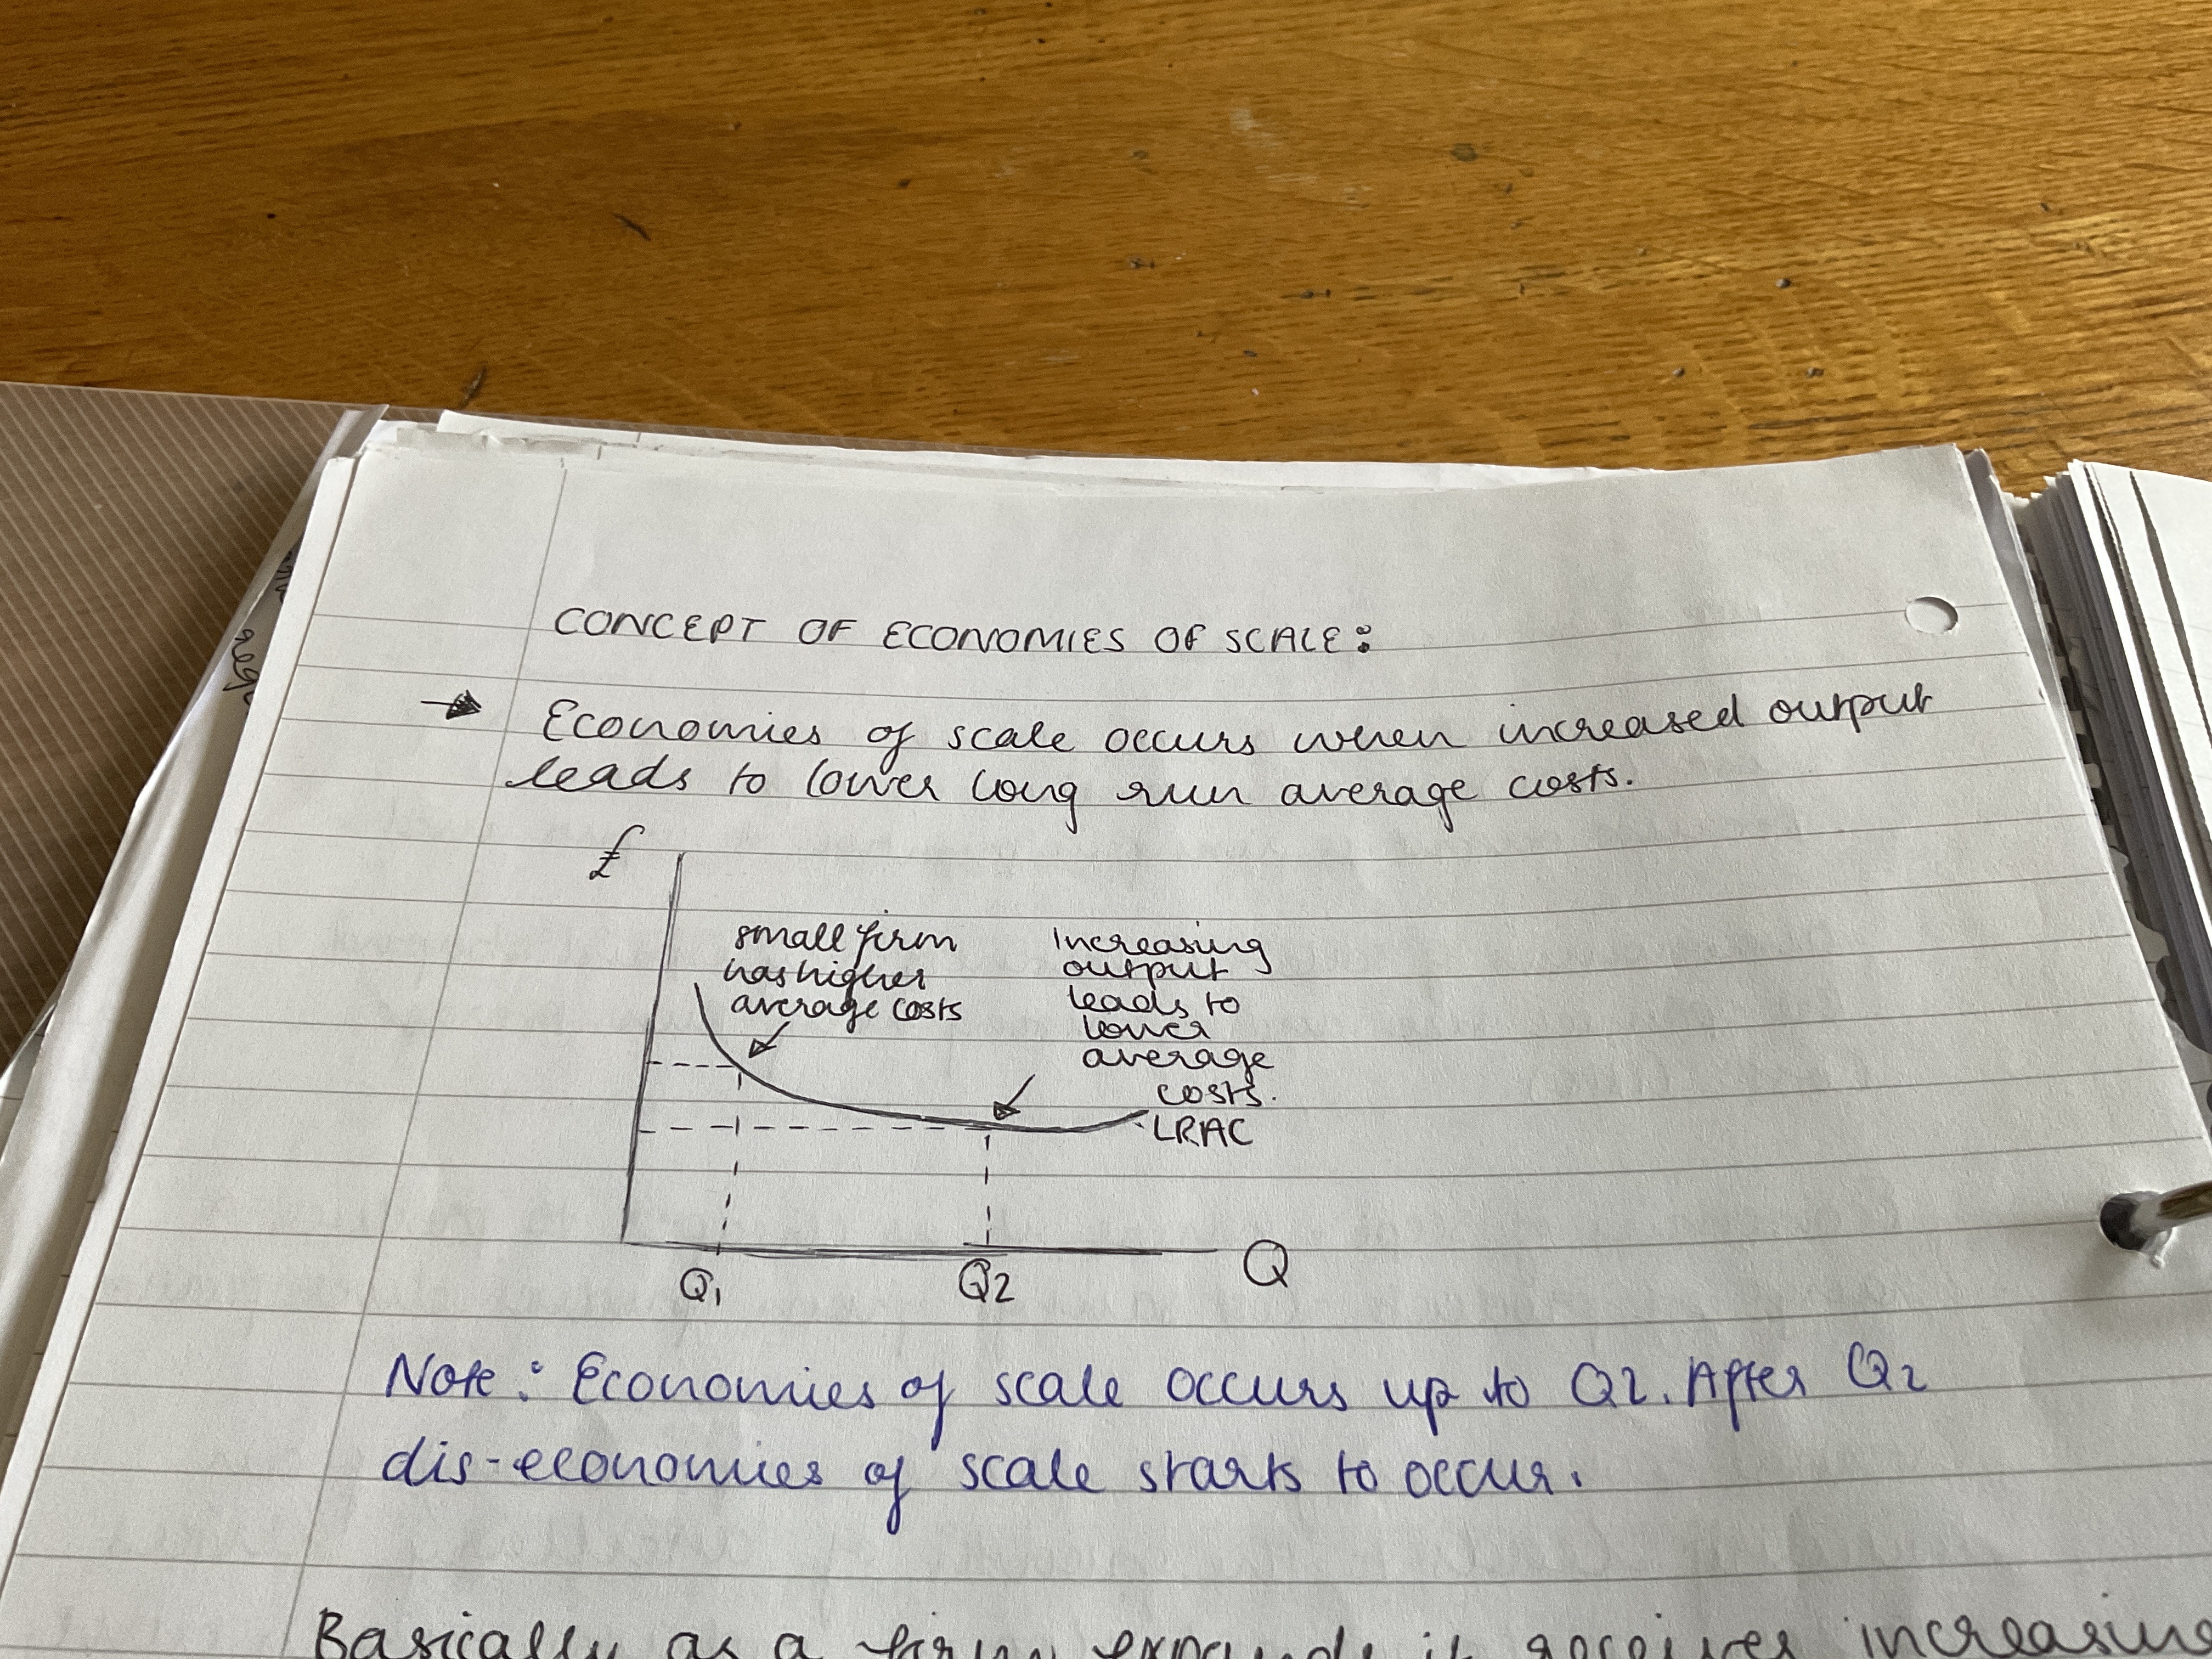 CONCEPT OF ECONOMIES OF SCALE:
Economies of scale occurs when increased output
leads to lower long run average costs.
£
small firm
has higher
average costs
Increasing
output
leads to
lower
average
costs.
LRAC
Q1
Q2
Q
Note: Economies of scale occurs up to Q2. After Q2
dis-economies of scale starts to occur.
Basically as a firm expands it receives increasing